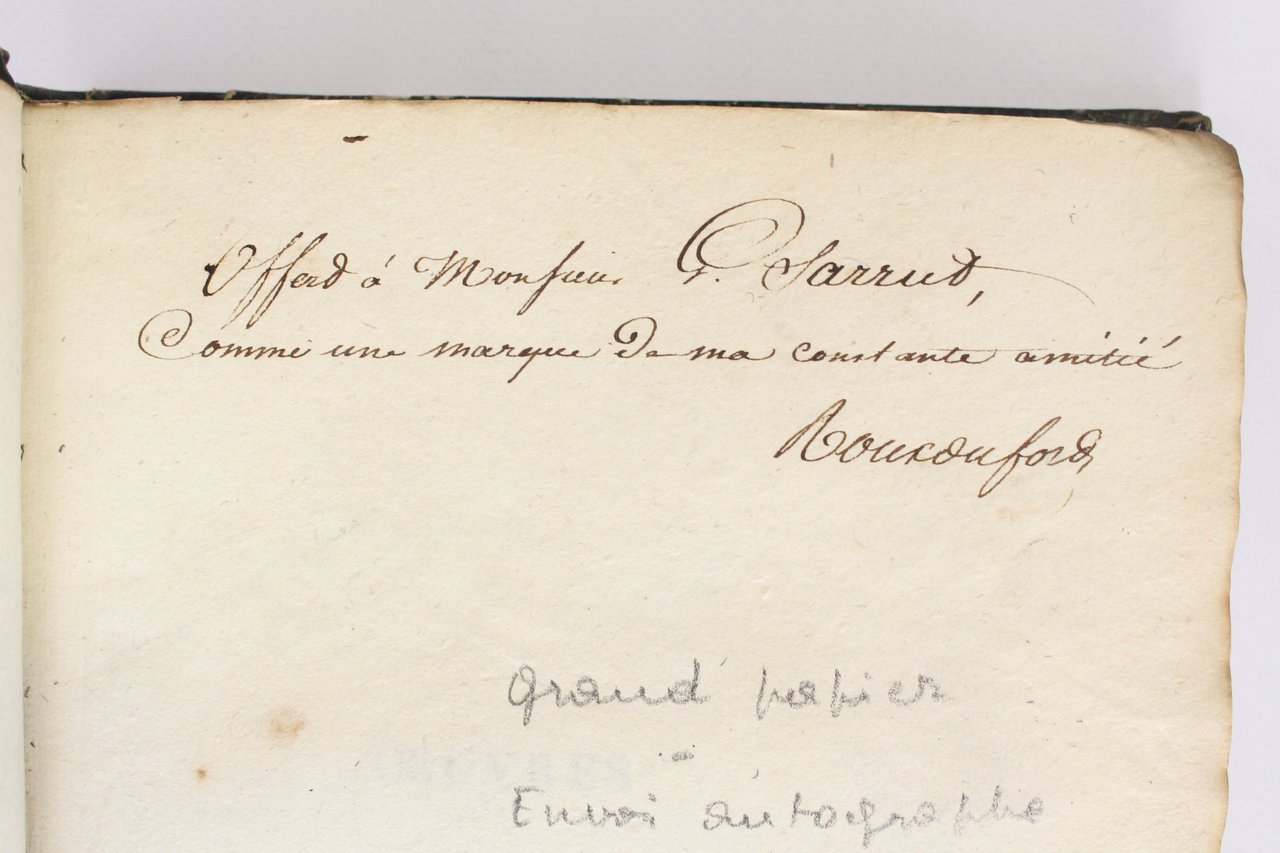 Offert à Monsieur G. Sarrut,
Comme une marque de ma constante amitié
grand papier
-
Envoi autographe
OEUVRES